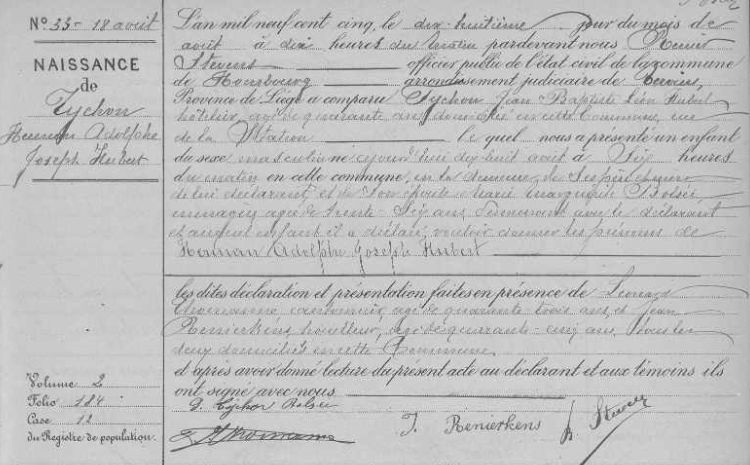 N° 33 - 18 août
NAISSANCE
de
Tychon
Herman Adolphe
Joseph Hubert
Volume 2
Folio 184
Case 12
du Registre de population.
L'an mil neuf cent cinq, le dix-huitième jour du mois de
août à dix heures du matin pardevant nous
Stevens officier public de l'état civil de la commune
de Hombourg arrondissement judiciaire de Verviers,
Province de Liége a comparu Tychon Jean Baptiste Léon Hubert
hôtelier, agé de quarante ans domicilié en cette Commune, rue
de la Station le quel nous a présenté un enfant
du sexe masculin né ce jourd'hui dix huit août à Six heures
du matin en cette commune, en la demeure de
de lui déclarant et de son épouse Marie Marguerite
ménagère agée de trente-six ans, demeurant avec le déclarant
et auquel enfant il a déclaré vouloir donner les prénoms de
Herman Adolphe Joseph Hubert
les dites déclaration et présentation faites en présence de Léonard
agé de quarante trois ans, et Jean
Renierkens houilleur, agé de quarante-cinq ans, tous les
deux domiciliés en cette Commune.
et d'après avoir donné lecture du présent acte au déclarant et aux témoins ils
ont signé avec nous
Tychon
J. Renierkens
Stevens